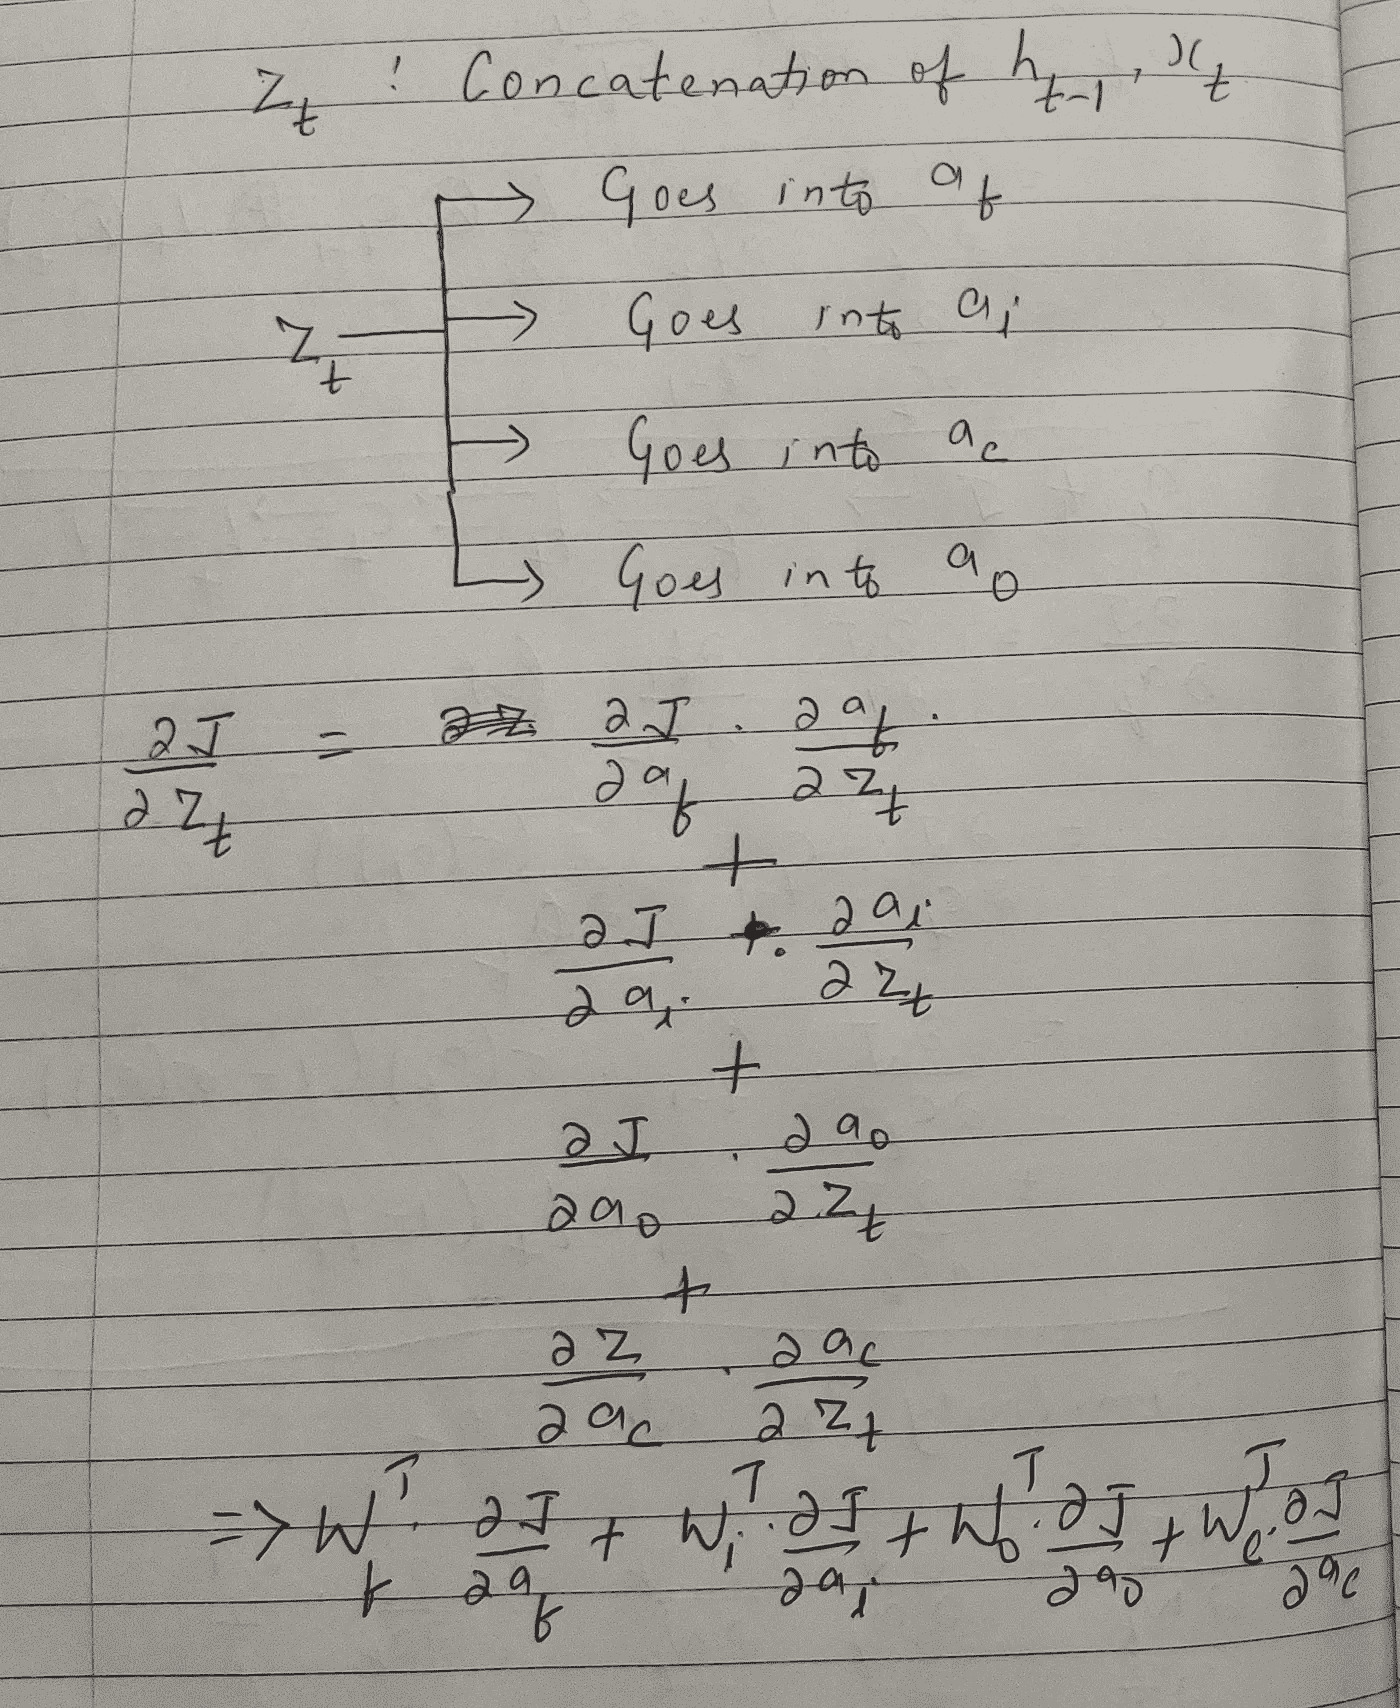 z_t : Concatenation of h_{t-1}, x_t
→ Goes into a_f
→ Goes into a_i
z_t
→ Goes into a_c
→ Goes into a_o
∂J/∂z_t = ∂J/∂a_f · ∂a_f/∂z_t
+
∂J/∂a_i · ∂a_i/∂z_t
+
∂J/∂a_o · ∂a_o/∂z_t
+
∂z/∂a_c · ∂a_c/∂z_t
=> W_f^T · ∂J/∂a_f + W_i^T · ∂J/∂a_i + W_o^T · ∂J/∂a_o + W_c^T · ∂J/∂a_c